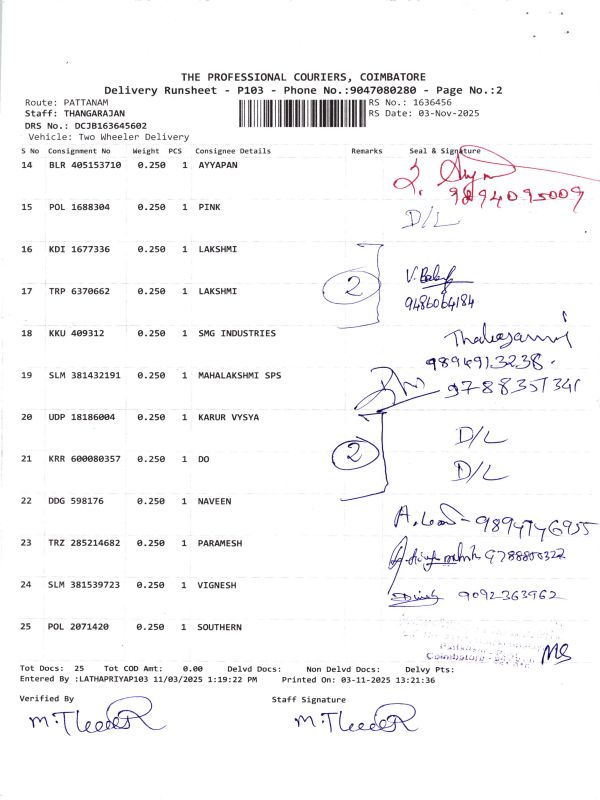 THE PROFESSIONAL COURIERS, COIMBATORE
Delivery Runsheet - P103 - Phone No.:9047080280 - Page No.:2
Route: PATTANAM RS No.: 1636456
Staff: THANGARAJAN RS Date: 03-Nov-2025
DRS No.: DCJB163645602
Vehicle: Two Wheeler Delivery
S No Consignment No Weight PCS Consignee Details Remarks Seal & Signature
14 BLR 405153710 0.250 1 AYYAPAN
9894095009
15 POL 1688304 0.250 1 PINK D/L
16 KDI 1677336 0.250 1 LAKSHMI
2
17 TRP 6370662 0.250 1 LAKSHMI
9486064184
18 KKU 409312 0.250 1 SMG INDUSTRIES
9894913238.
19 SLM 381432191 0.250 1 MAHALAKSHMI SPS
9788357341
20 UDP 18186004 0.250 1 KARUR VYSYA D/L
2
21 KRR 600080357 0.250 1 DO D/L
22 DDG 598176 0.250 1 NAVEEN
23 TRZ 285214682 0.250 1 PARAMESH
24 SLM 381539723 0.250 1 VIGNESH 9092363962
25 POL 2071420 0.250 1 SOUTHERN
Coimbatore MS
Tot Docs: 25 Tot COD Amt: 0.00 Delvd Docs: Non Delvd Docs: Delvy Pts:
Entered By :LATHAPRIYAP103 11/03/2025 1:19:22 PM Printed On: 03-11-2025 13:21:36
Verified By Staff Signature